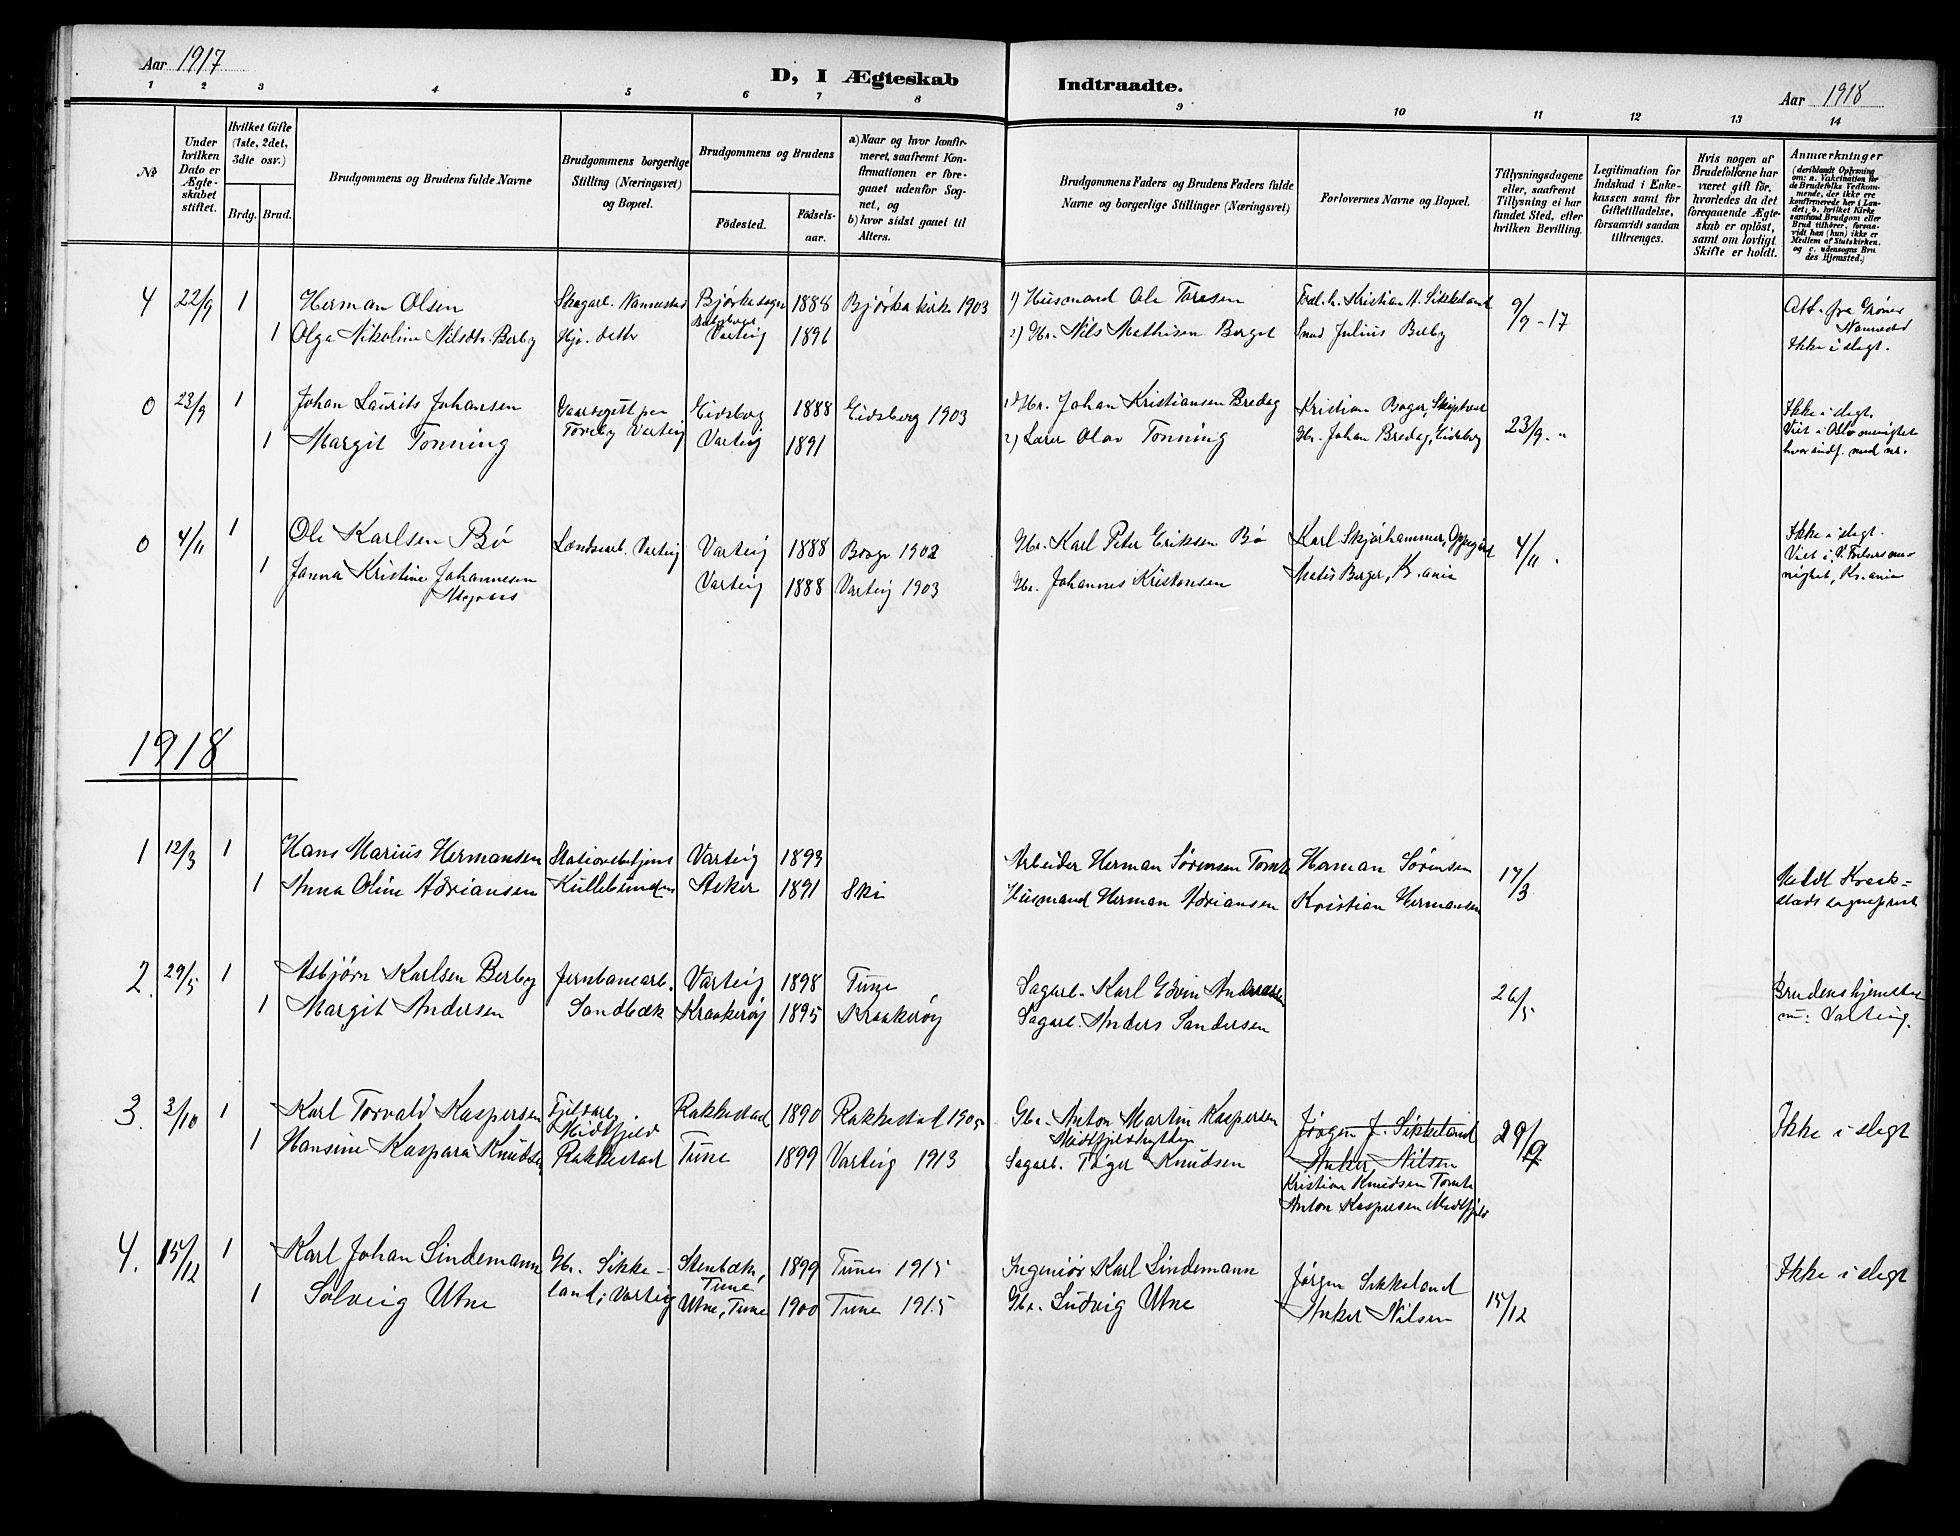 Aar 1917
D, I Ægteskab Indtraadte.
Aar 1918
1 2 3 4 5 6 7 8 9 10 11 12 13 14
No
Under hvilken Dato er Ægteskabet stiftet.
Hvilket Gifte (1ste, 2det, 3die osv.)
Brdg. Brud.
Brudgommens og Brudens fulde Navne
Brudgommens borgerlige Stilling (Næringsvei) og Bopæl.
Brudgommens og Brudens
Fødested. Fødselsaar.
a) Naar og hvor konfirmeret, saafremt Konfirmationen er foregaaet udenfor Sognet, og
b) hvor sidst gaaet til Alters.
Brudgommens Faders og Brudens Faders fulde Navne og borgerlige Stillinger (Næringsvei)
Forlovernes Navne og Bopæl.
Tillysningsdagene eller, saafremt Tillysning ei har fundet Sted, efter hvilken Bevilling.
Legitimation for Indskud i Enkekassen samt for Giftetilladelse, forsaavidt saadan tiltrænges.
Hvis nogen af Brudefolkene har været gift før, hvorledes da det foregaaende Ægteskab er opløst, samt om lovligt Skifte er holdt.
Anmærkninger
(deriblandt Oplysning om: a. Vakcination for de Brudefolks Vedkommende, der ikke ere konfirmerede her i Landet, b. hvilket Kirkesamfund Brudgom eller Brud tilhører, forsaavidt han (hun) ikke er Medlem af Statskirken, og c. udensogns Brudes Hjemsted.)
4 22/9 1 Herman Olsen Skogarb. Nannestad Bjørke sogn 1888 Bjørke kirke 1903 1) Husmand Ole Toresen Kristian H. Sikkeland 9/9-17 Att. fra Nannestad
1 Olga Nikoline Nilsdtr. Berby Hj. datter Varteig 1896 2) Gbr. Nils Mathisen Berget Smed Julius Berby Ikke i slegt.
0 23/9 1 Johan Laurits Johansen Eidsberg 1888 Eidsberg 1903 1) Gbr. Johan Kristiansen Bredag Kristian Boger, Skiptvet 23/9 " Ikke i slegt.
1 Margit Tonning Varteig Varteig 1891 2) Lærer Olav Tonning Gbr. Johan Bredag, Eidsberg Viet i Oslo menighet hvor indf. med nr.
0 4/11 1 Ole Karlsen Bø Landsarb. Varteig Varteig 1888 Borge 1902 Gbr. Karl Peter Eriksen Bø Karl Skjørhammer, Oppegård 4/11 Ikke i slegt.
1 Janna Kristine Johannesen Varteig 1888 Varteig 1903 Gbr. Johannes Kristensen Berger, Kr.ania Viet i menighet, Kr.ania
1918
1 12/3 1 Hans Marius Hermansen Stationsbetjent Varteig 1893 Arbeider Herman Sørensen Tomte Herman Sørensen 17/3 Meldt Kraakstads sogneprest
1 Anna Oline Adriansen Kullebunden Asker 1891 Ski Husmand Herman Adriansen Kristian Hermansen
2. 29/5 1 Asbjørn Karlsen Berby Jernbanearb. Varteig 1898 Tune Sagarb. Karl Edvin Andreassen 26/5 Brudens hjemsted
1 Margit Andersen Sandbæk Kraakerøy 1895 Kraakerøy Sagarb. Anders Sandersen nu: Varteig.
3. 3/10 1 Karl Torvald Kaspersen Rakkestad 1890 Rakkestad 1905 Gbr. Anton Martin Kaspersen Jørgen J. Sikkeland 29/9 Ikke i slegt
Midtfjeld
1 Hansine Kaspara Knudsen Rakkestad Tune 1899 Varteig 1913 Sagarb. Knudsen Anker Nilsen
Kristian Knudsen Tomte
Anton Kaspersen Midtfjeld
4. 15/12 1 Karl Johan Lindemann Gbr. Sikkeland, Varteig Stenbæk, Tune 1899 Tune 1915 Ingeniør Karl Lindemann Jørgen Sikkeland 15/12 Ikke i slegt
1 Solveig Utne Utne, Tune 1900 Tune 1915 Gbr. Ludvig Utne Anker Nilsen